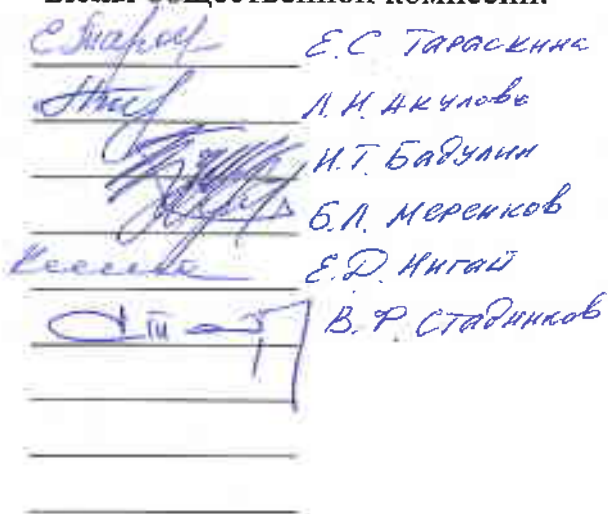 общественной комиссии:
Е.С Тараскина
Л.Н. Акулова
Н.Т. Бадулин
Б.Л. Меренков
Е.Д. Нигай
В.Ф. Стадников